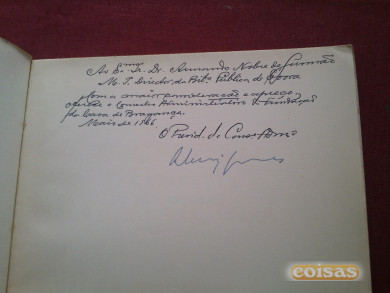 Ao Exmo Sr. Dr. Armando Nobre de Gusmão
M. I. Director da Bib. Pública de Évora
com a maior consideração e apreço
oferece o Conselho Administrativo da Fundação
da Casa de Bragança.
Maio de 1966.
O Presid. do Cons. Admo
coisas